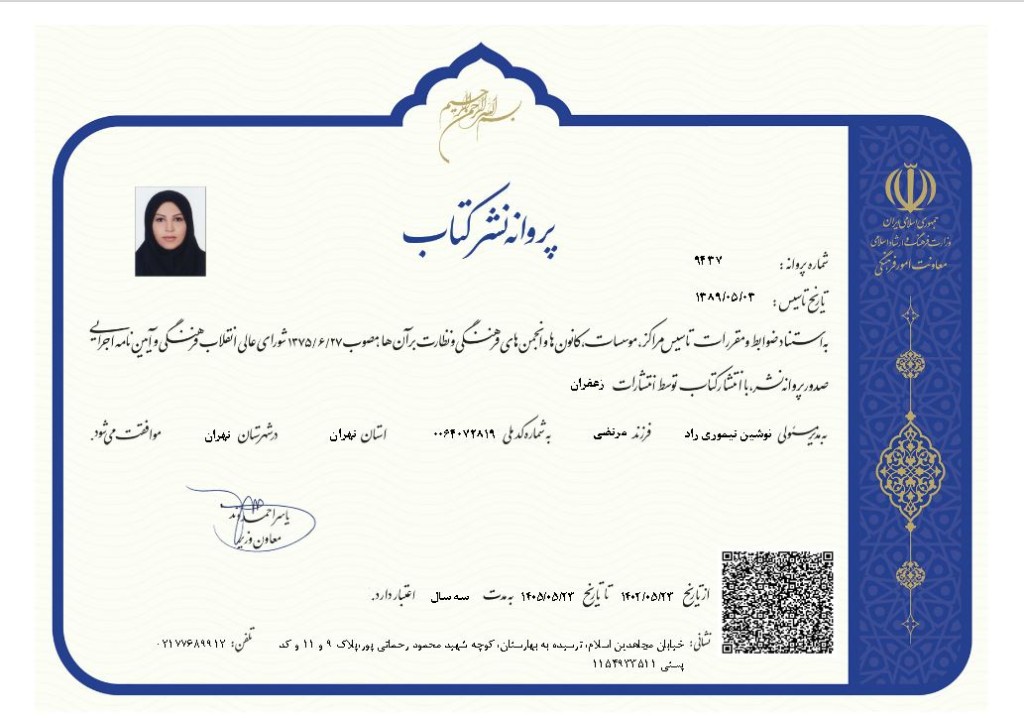 بسم الله الرحمن الرحیم
جمهوری اسلامی ایران
وزارت فرهنگ و ارشاد اسلامی
معاونت امور فرهنگی
پروانه نشر کتاب
شماره پروانه : ۹۴۳۷
تاریخ تاسیس : ۱۳۸۹/۰۵/۰۳
به استناد ضوابط و مقررات تاسیس مراکز، موسسات، کانون ها و انجمن های فرهنگی و نظارت بر آن ها مصوب ۱۳۷۵/۶/۲۷ شورای عالی انقلاب فرهنگی و آیین نامه اجرایی
صدور پروانه نشر، با انتشار کتاب توسط انتشارات زعفران
به مدیر مسئولی نوشین تیموری راد فرزند مرتضی به شماره کد ملی ۰۰۶۴۰۷۲۸۱۹ استان تهران در شهرستان تهران موافقت می شود.
یاسر احمدوند
معاون وزیر
از تاریخ ۱۴۰۲/۰۵/۲۳ تا تاریخ ۱۴۰۵/۰۵/۲۳ به مدت سه سال اعتبار دارد.
نشانی: خیابان مجاهدین اسلام، نرسیده به بهارستان، کوچه شهید محمود رحمانی پور،پلاک ۹ و ۱۱ و کد
پستی ۱۱۵۴۹۳۳۵۱۱
تلفن: ۰۲۱۷۷۶۸۹۹۱۲